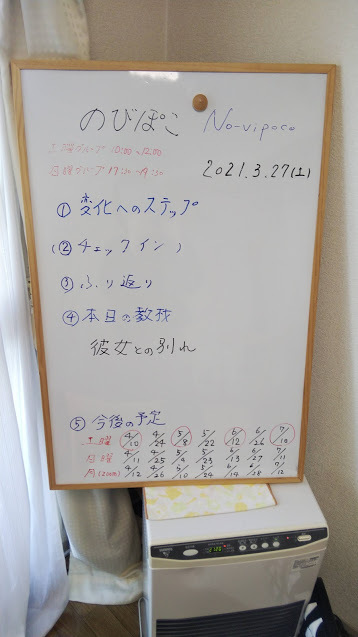 のびぽこ No-vipoco
土曜グループ 10:00~12:00
日曜グループ 17:30~19:30
2021.3.27(土)
① 変化へのステップ
(② チェックイン )
③ ふり返り
④ 本日の教材
彼女との別れ
⑤ 今後の予定
土曜 4/10 4/24 5/8 5/22 6/12 6/26 7/10
日曜 4/11 4/25 5/9 5/23 6/13 6/27 7/11
月(zoom) 4/12 4/26 5/10 5/24 6/14 6/28 7/12